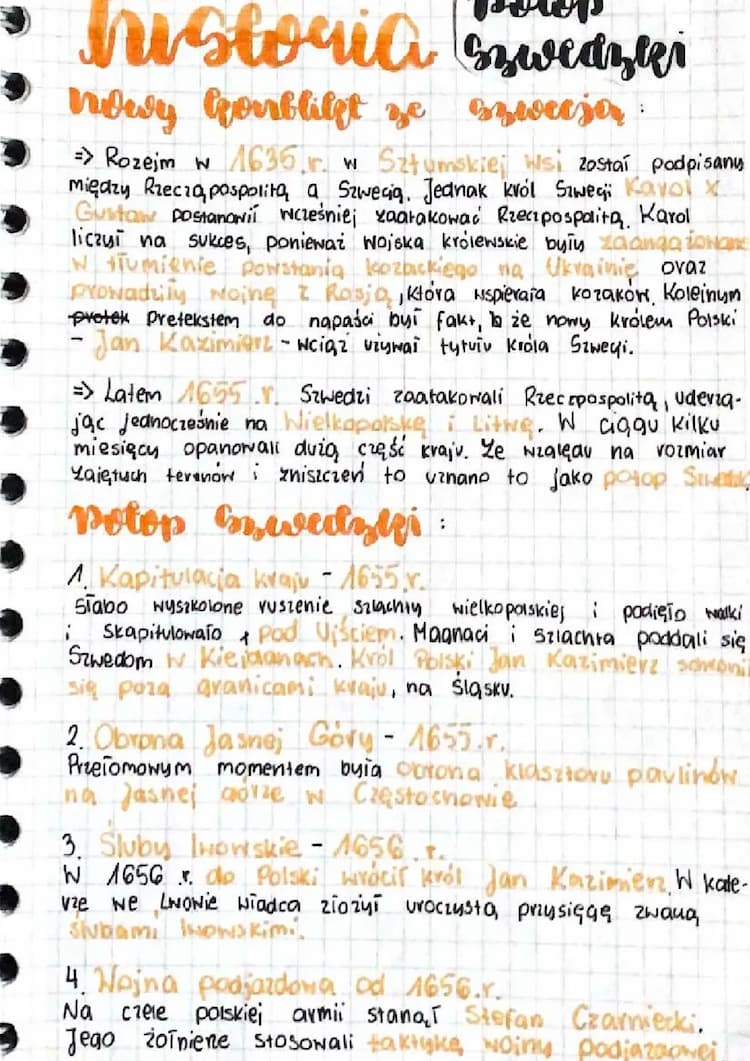 historia
potop
szwedzki
nowy konflikt ze szwecją :
=> Rozejm w 1635 r. w Sztumskiej Wsi został podpisany
między Rzeczapospolitą a Szwecią. Jednak król Szwecji Karol X
Gustaw postanowił wcześniej zaatakować Rzeczpospolitą. Karol
liczył na sukces, ponieważ wojska królewskie były zaangażowane
w tłumienie powstania kozackiego na Ukrainie oraz
prowadziły wojnę z Rosją, która wspierała kozaków. Kolejnym
pretek Pretekstem do napaści był fakt, że nowy królem Polski
- Jan Kazimierz - wciąż używał tytułu króla Szwecji.
=> Latem 1655 r. Szwedzi zaatakowali Rzeczpospolitą, uderza-
jąc jednocześnie na Wielkopolskę i Litwę. W ciągu kilku
miesięcy opanowali dużą część kraju. Ze względu na rozmiar
zajętych terenów i zniszczeń to uznano to jako potop
potop szwedzki :
1. Kapitulacja kraju - 1655.r.
Słabo wyszkolone ruszenie szlachty wielkopolskiej i podjęło walki
i skapitulowało pod Ujściem. Magnaci i szlachta poddali się
Szwedom w Kiejdanach. Król Polski Jan Kazimierz schronił
się poza granicami kraju, na śląsku.
2. Obrona Jasnej Góry - 1655.r.
Przełomowym momentem była obrona klasztoru paulinów
na Jasnej górze w Częstochowie
3. Śluby lwowskie - 1656 .r.
W 1656 .r. do Polski wrócił król Jan Kazimierz. W kate-
rze we Lwowie władca złożył uroczystą przysięgę zwaną
ślubami lwowskimi.
4. Wojna podjazdowa od 1656.r.
Na czele polskiej armii stanął Stefan Czarniecki.
Jego żołnierze stosowali taktykę wojny podjazdowej